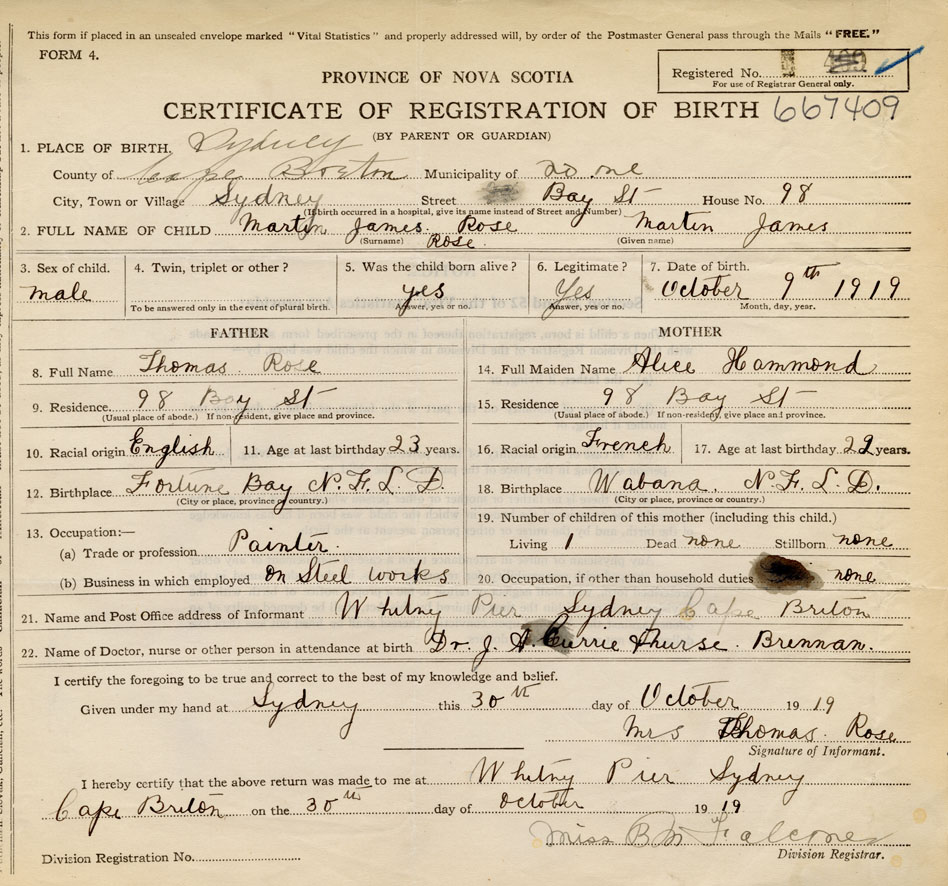 This form if placed in an unsealed envelope marked "Vital Statistics" and properly addressed will, by order of the Postmaster General pass through the Mails "FREE."
FORM 4.
Registered No.
For use of Registrar General only.
PROVINCE OF NOVA SCOTIA
CERTIFICATE OF REGISTRATION OF BIRTH 667409
(BY PARENT OR GUARDIAN)
1. PLACE OF BIRTH, Sydney
County of Cape Breton Municipality of
City, Town or Village Sydney Street Bay St House No. 98
(If birth occurred in a hospital, give its name instead of Street and Number)
2. FULL NAME OF CHILD Martin James Rose Martin James
(Surname) Rose (Given name)
3. Sex of child. 4. Twin, triplet or other? 5. Was the child born alive? 6. Legitimate? 7. Date of birth.
male yes Yes October 9th 1919
To be answered only in the event of plural birth. Answer, yes or no. Answer, yes or no. Month, day, year.
FATHER MOTHER
8. Full Name Thomas Rose 14. Full Maiden Name Alice Hammond
9. Residence 98 Bay St 15. Residence 98 Bay St
(Usual place of abode.) If non-resident, give place and province. (Usual place of abode.) If non-resident, give place and province.
10. Racial origin English 11. Age at last birthday 23 years. 16. Racial origin French 17. Age at last birthday 22 years.
12. Birthplace Fortune Bay N.F.L.D. 18. Birthplace Wabana, N.F.L.D.
(City or place, province or country.) (City or place, province or country?)
13. Occupation:— 19. Number of children of this mother (including this child.)
(a) Trade or profession Painter. Living 1 Dead none Stillborn none
(b) Business in which employed on Steel works 20. Occupation, if other than household duties none
21. Name and Post Office address of Informant Whitny Pier Sydney Cape Briton
22. Name of Doctor, nurse or other person in attendance at birth Dr. J. A. Currie & nurse Brennan.
I certify the foregoing to be true and correct to the best of my knowledge and belief.
Given under my hand at Sydney this 30th day of October 1919
Mrs Thomas Rose
Signature of Informant.
I hereby certify that the above return was made to me at Whitny Pier Sydney
Cape Briton on the 30th day of October 1919
Miss B M Falconer
Division Registration No. Division Registrar.